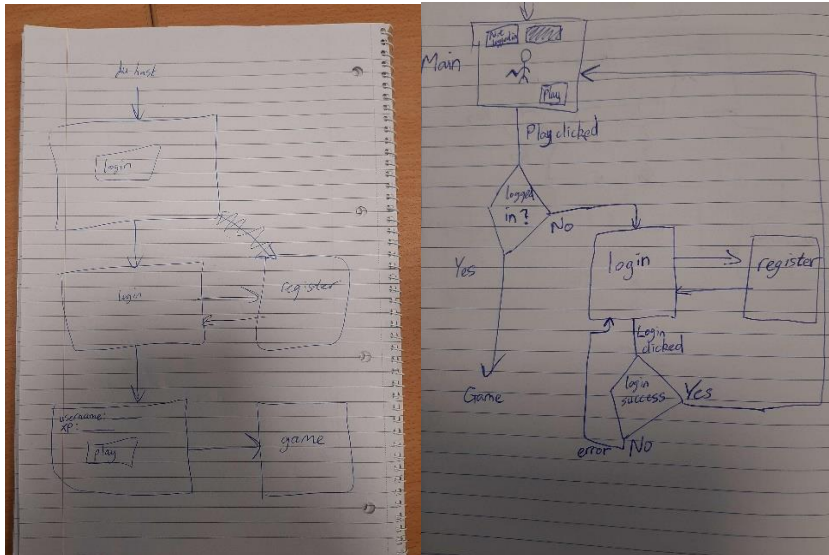 login
login
register
username:
XP:
play
game
Main
Play
Play clicked
logged
in?
No
Yes
login
register
Login
clicked
login
success
Yes
Game
error
No